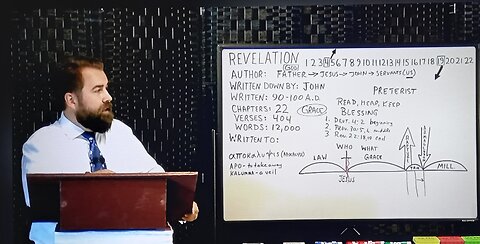 REVELATION
GOD
1 2 3 4 5 6 7 8 9 10 11 12 13 14 15 16 17 18 19 20 21 22
AUTHOR: FATHER → JESUS → JOHN → SERVANTS (US)
WRITTEN DOWN BY: JOHN
WRITTEN: 90-100 A.D.
CHAPTERS: 22
GRACE
VERSES: 404
WORDS: 12,000
WRITTEN TO:
APO- to take away
KALUMMA- a veil
PRETERIST
READ, HEAR, KEEP
BLESSING
1. Deut. 4:2 beginning
2. Prov. 30:5,6 middle
3. Rev. 22:18,19 end
WHO WHAT
LAW GRACE
JESUS
MILL.